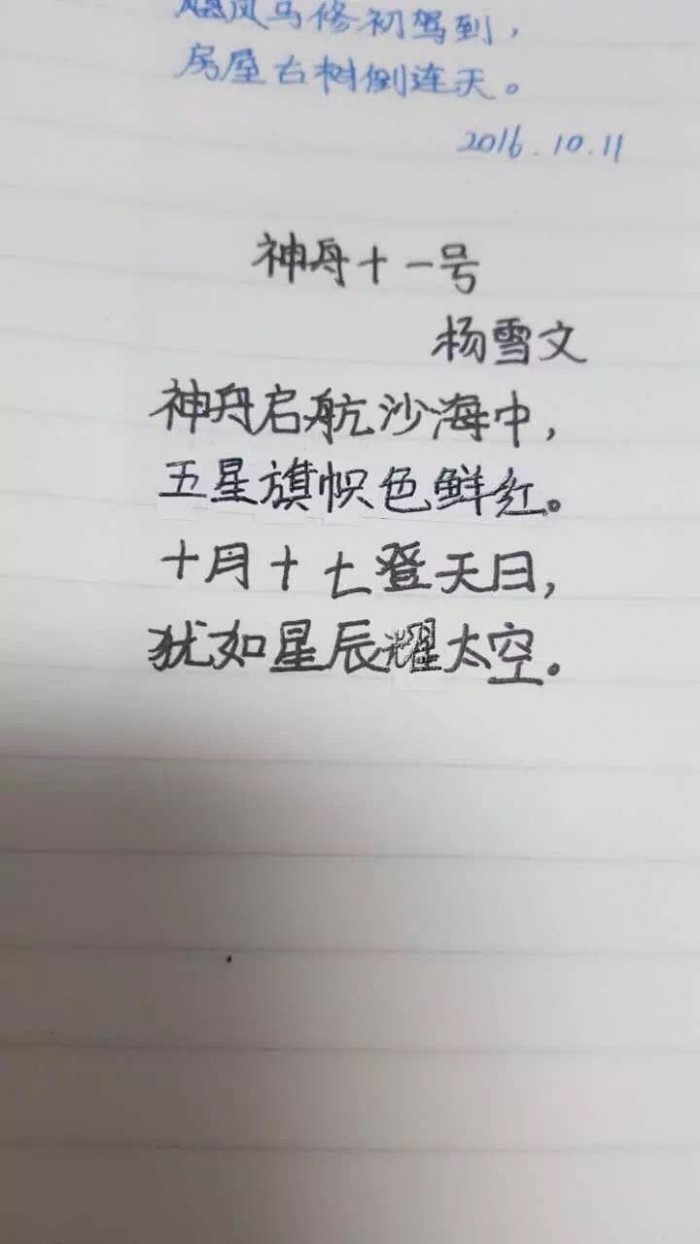 飓风马修初驾到，
房屋古树倒连天。
2016.10.11
神舟十一号
杨雪文
神舟启航沙海中，
五星旗帜色鲜红。
十月十七登天日，
犹如星辰耀太空。